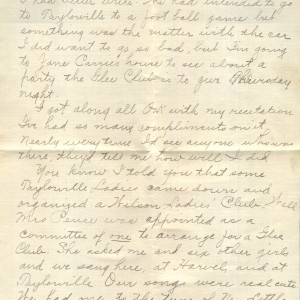 I had better write. We had intended to go
to Taylorville to a foot ball game but
something was the matter with the car
I did want to go so bad, but I'm going
to Jane Carries house to see about a
party the Glee Club is to give Thursday
night.
I got along all O.K. with my recitation
I've had so many compliments on it,
nearly everytime I'd see anyone who was
there, they'd tell me how well I did
You know I told you that some
Taylorville Ladies came down and
organized a Wilson Ladies' Club. Well
Mrs was appointed as a
committee of one to arrange for a Glee
Club. She asked me and six other girls
and we sang here, at Harvel, and at
Taylorville Our songs were real cute
We had one to the tune of "